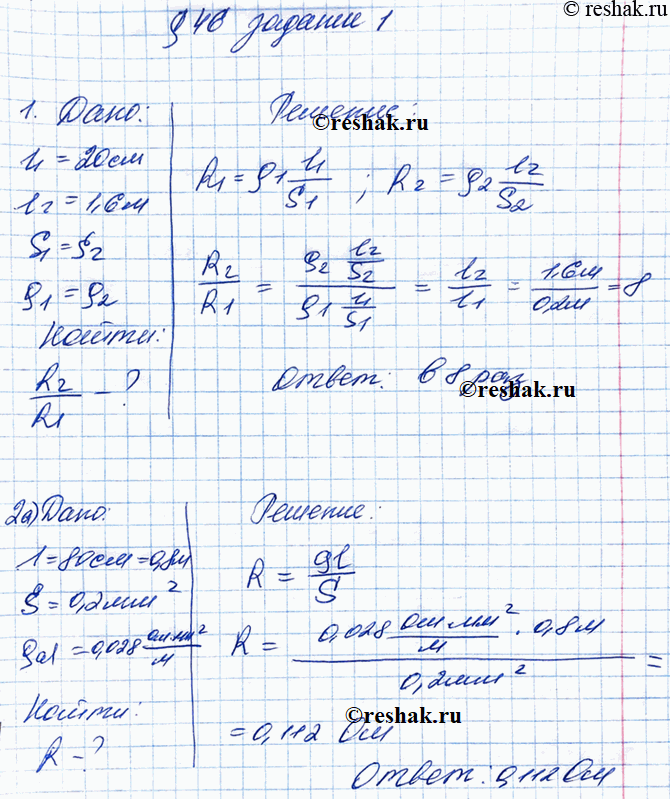 © reshak.ru
§ 46 задание 1
1. Дано:
l1 = 20см
l2 = 1,6м
S1 = S2
ρ1 = ρ2
Найти:
R2/R1 - ?
Решение:
©reshak.ru
R1 = ρ1 l1/S1 ; R2 = ρ2 l2/S2
R2/R1 = (ρ2 l2/S2)/(ρ1 l1/S1) = l2/l1 = 1,6м/0,2м = 8
Ответ: в 8 раз
©reshak.ru
2а) Дано:
l = 80см = 0,8м
S = 0,2мм²
ρal = 0,028 Ом мм²/м
Найти:
R - ?
Решение:
R = ρl/S
R = (0,028 Ом мм²/м · 0,8м)/(0,2мм²) =
= 0,112 Ом
©reshak.ru
Ответ: 0,112 Ом